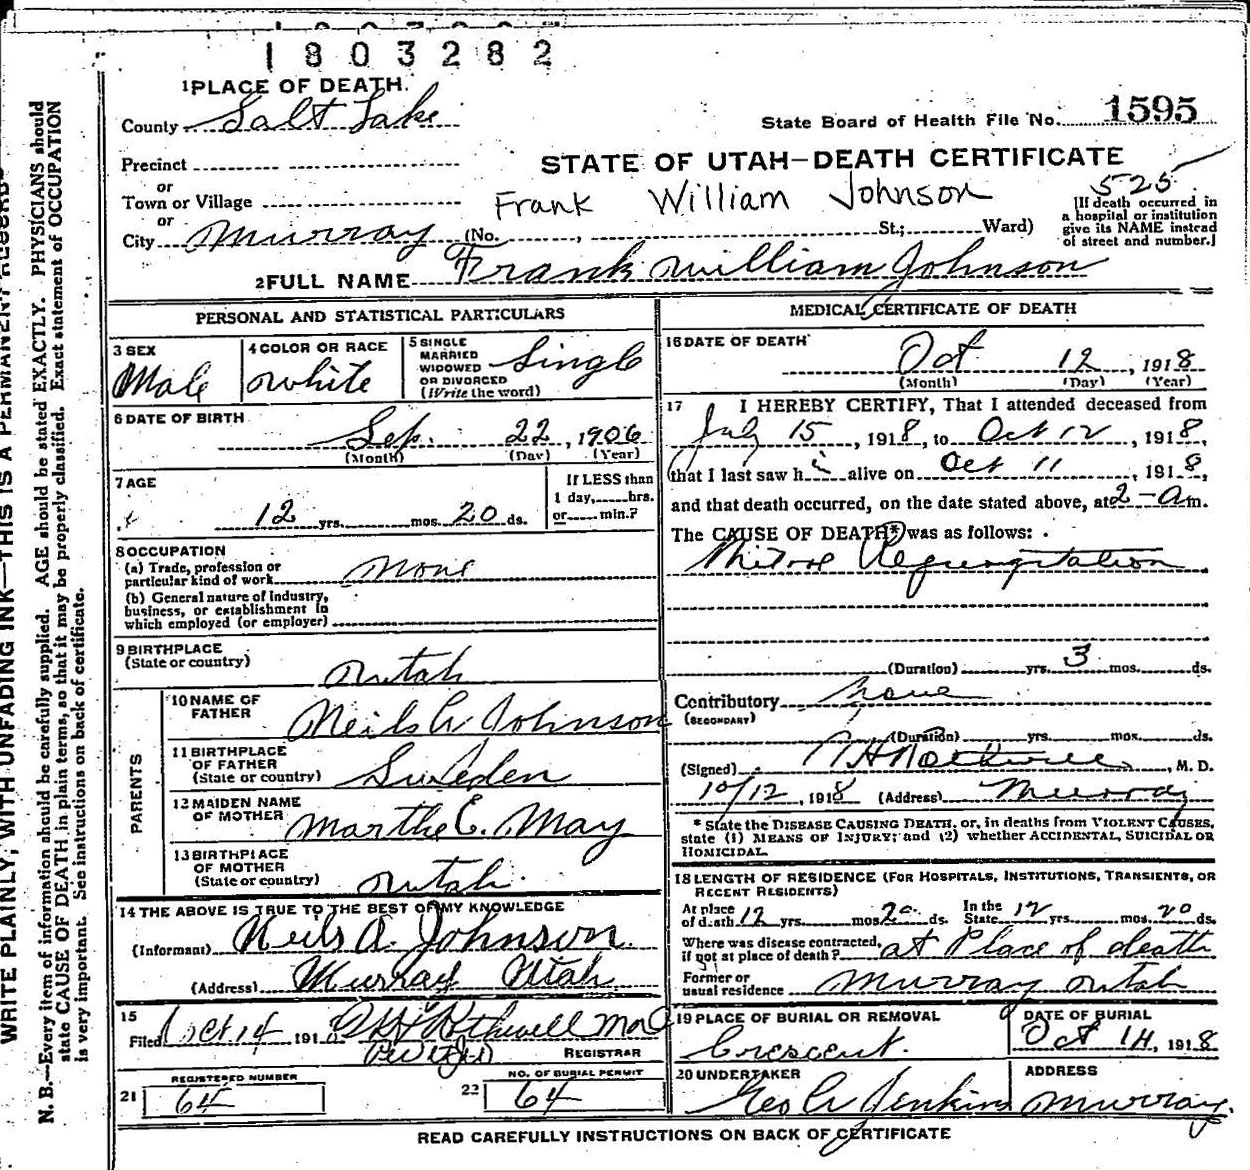 1803282
1 PLACE OF DEATH.
County Salt Lake
State Board of Health File No. 1595
Precinct
STATE OF UTAH—DEATH CERTIFICATE
or
Town or Village
Frank William Johnson
525
[If death occurred in a hospital or institution give its NAME instead of street and number.]
or
City Murray (No. , St.; Ward)
2 FULL NAME Frank William Johnson
PERSONAL AND STATISTICAL PARTICULARS
3 SEX
Male
4 COLOR OR RACE
White
5 SINGLE MARRIED WIDOWED OR DIVORCED (Write the word)
Single
6 DATE OF BIRTH
Sep. 22, 1906
(Month) (Day) (Year)
7 AGE
12 yrs. mos. 20 ds.
If LESS than
1 day, hrs.
or min.?
8 OCCUPATION
(a) Trade, profession or
particular kind of work None
(b) General nature of industry,
business, or establishment in
which employed (or employer)
9 BIRTHPLACE
(State or country)
Utah
PARENTS
10 NAME OF FATHER
Neils A Johnson
11 BIRTHPLACE OF FATHER
(State or country) Sweden
12 MAIDEN NAME OF MOTHER
Martha E. May
13 BIRTHPLACE OF MOTHER
(State or country) Utah
14 THE ABOVE IS TRUE TO THE BEST OF MY KNOWLEDGE
(Informant) Neils A. Johnson
(Address) Murray Utah
15
Filed Oct 14 1918 Rothwell
REGISTRAR
21 REGISTERED NUMBER
64
22 NO. OF BURIAL PERMIT
64
MEDICAL CERTIFICATE OF DEATH
16 DATE OF DEATH
Oct 12, 1918
(Month) (Day) (Year)
17 I HEREBY CERTIFY, That I attended deceased from
July 15, 1918, to Oct 12, 1918,
that I last saw hi alive on Oct 11, 1918,
and that death occurred, on the date stated above, at 2-am.
The CAUSE OF DEATH* was as follows:
Mitral Regurgitation
(Duration) yrs. 3 mos. ds.
Contributory None
(SECONDARY)
(Duration) yrs. mos. ds.
(Signed) H Rothwell, M. D.
10/12, 1918 (Address) Murray
* State the DISEASE CAUSING DEATH, or, in deaths from VIOLENT CAUSES,
state (1) MEANS OF INJURY; and (2) whether ACCIDENTAL, SUICIDAL OR
HOMICIDAL.
18 LENGTH OF RESIDENCE (FOR HOSPITALS, INSTITUTIONS, TRANSIENTS, OR
RECENT RESIDENTS)
At place of death 12 yrs. mos. 20 ds. In the State 12 yrs. mos. 20 ds.
Where was disease contracted,
if not at place of death? at Place of death
Former or
usual residence Murray Utah
19 PLACE OF BURIAL OR REMOVAL
Crescent.
DATE OF BURIAL
Oct 14, 1918
20 UNDERTAKER
Geo A Jenkins
ADDRESS
Murray.
READ CAREFULLY INSTRUCTIONS ON BACK OF CERTIFICATE
WRITE PLAINLY, WITH UNFADING INK—THIS IS A PERMANENT RECORD
N. B.—Every item of information should be carefully supplied. AGE should be stated EXACTLY. PHYSICIANS should
state CAUSE OF DEATH in plain terms, so that it may be properly classified. Exact statement of OCCUPATION
is very important. See instructions on back of certificate.